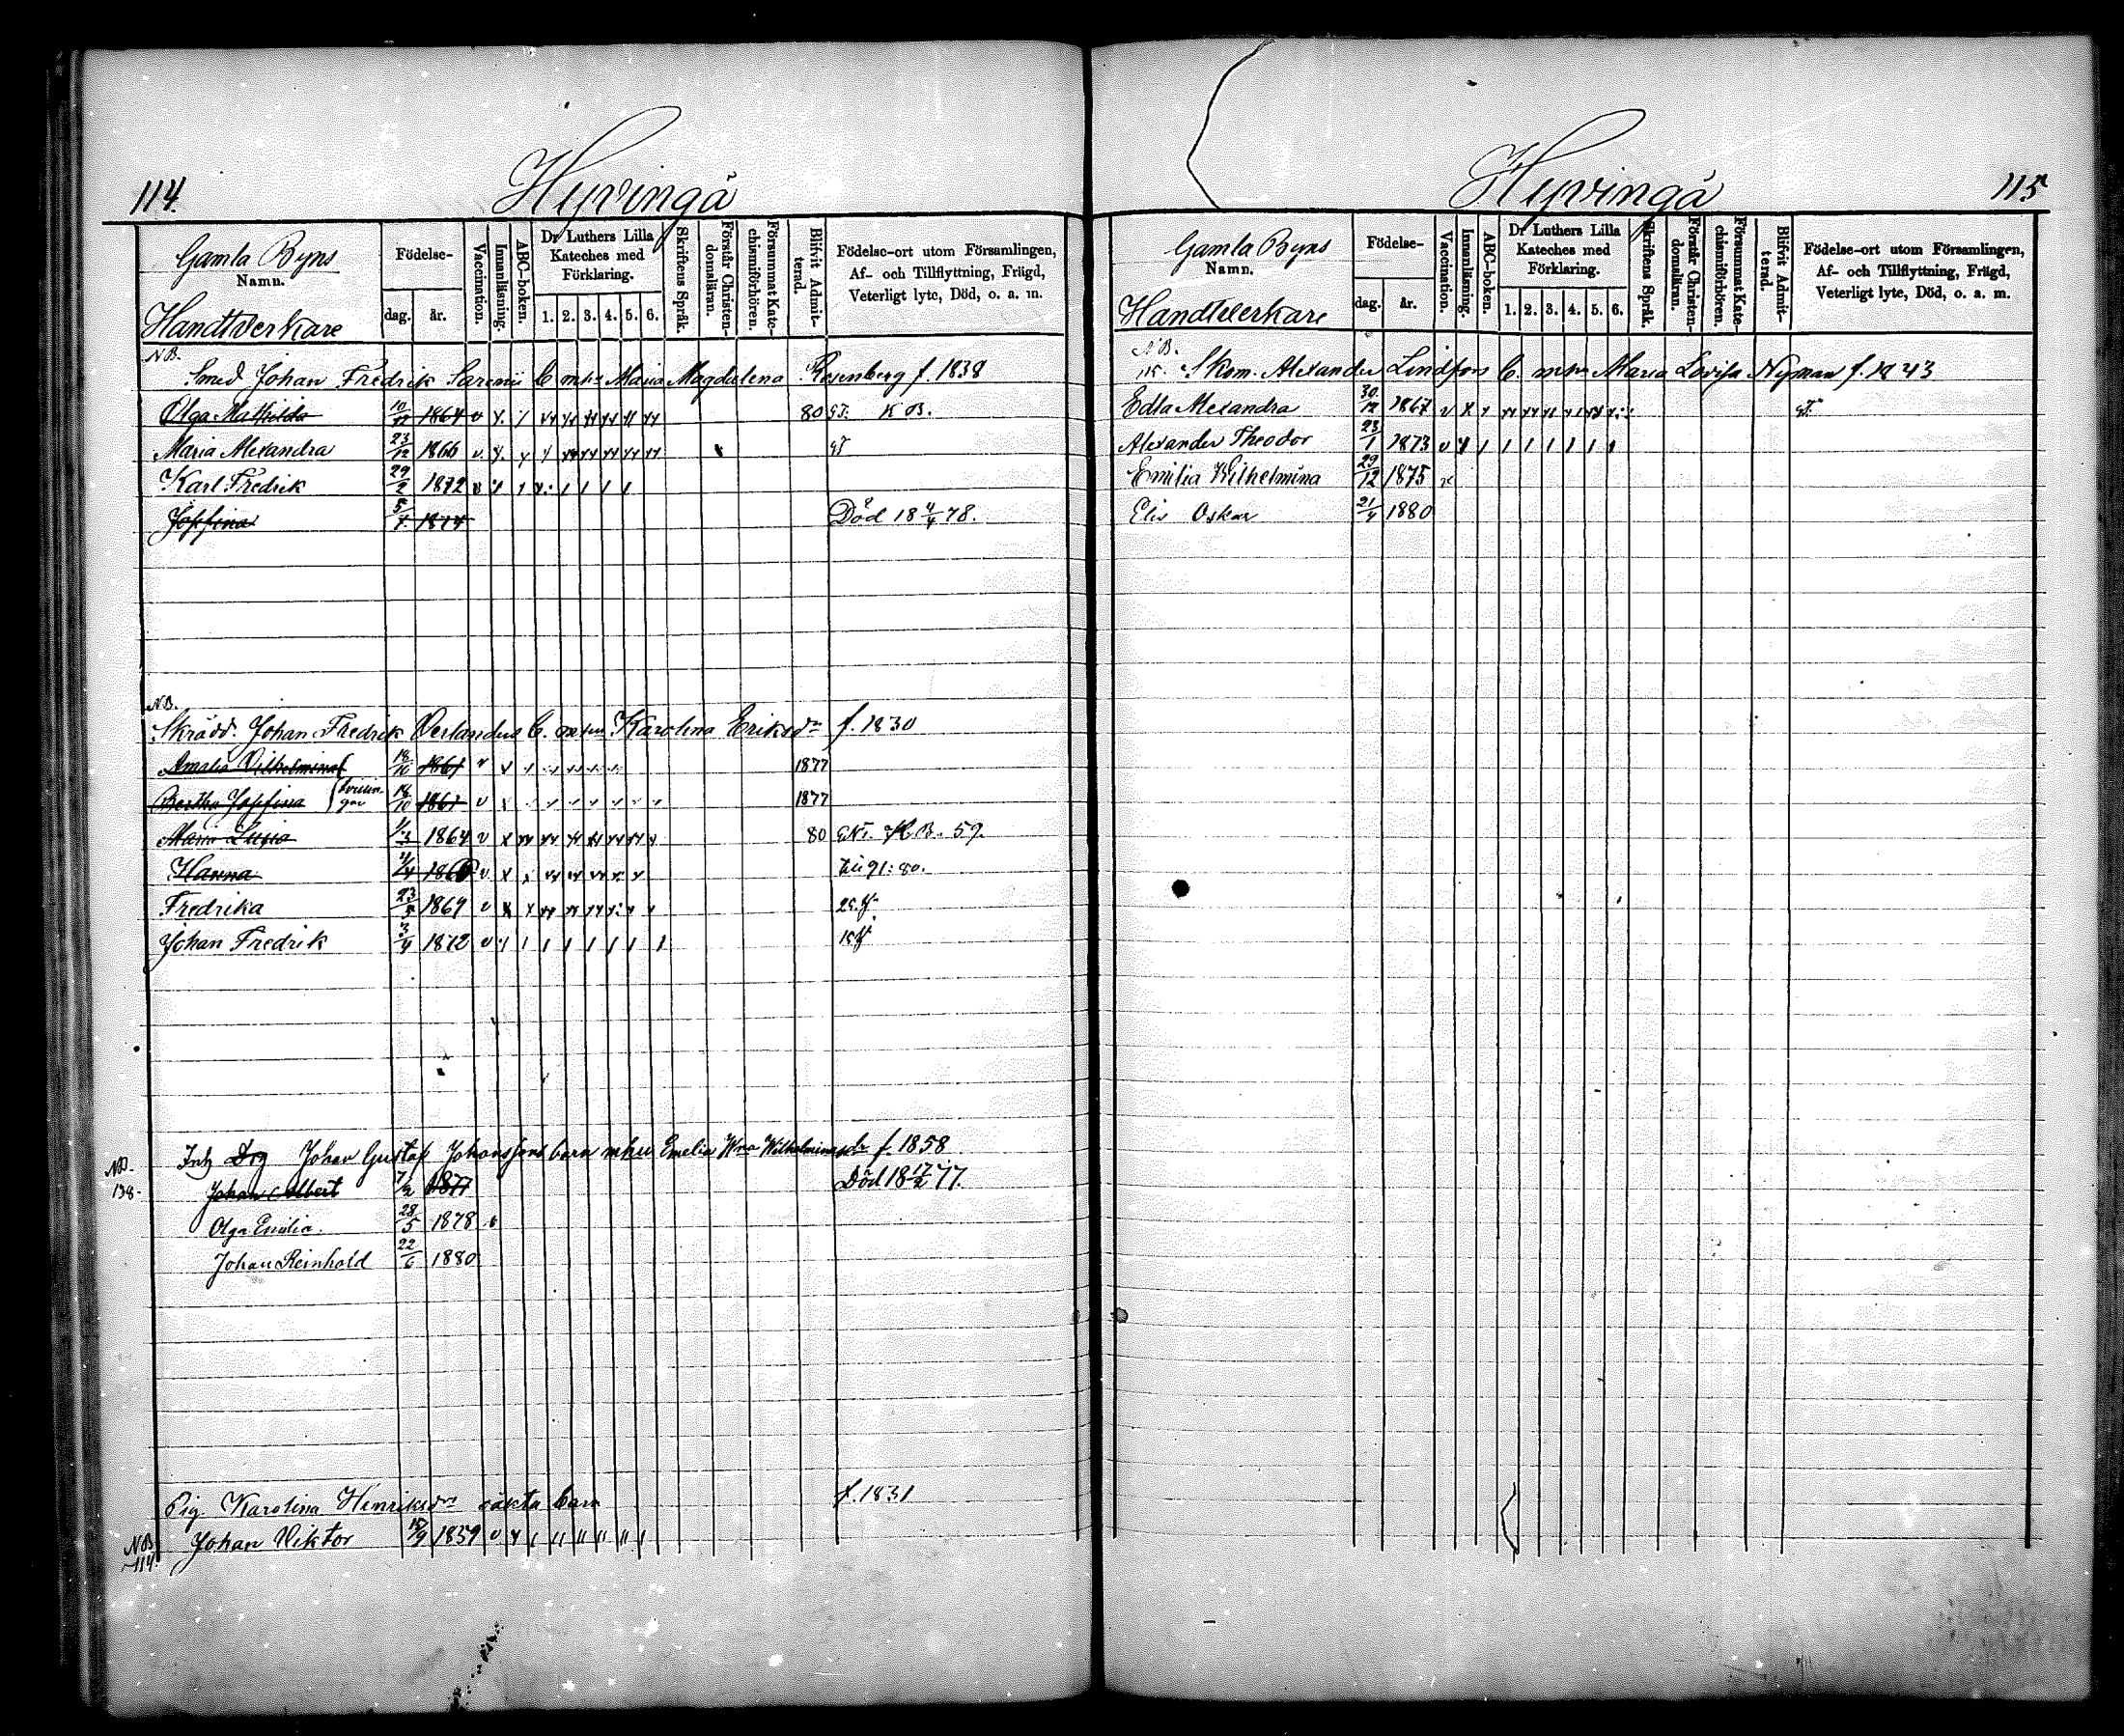 114.
Hyvingä
Gamla Byns
Namn.
Handtverkare
Födelse-
dag. år.
Vaccination.
Innanläsning.
ABC-boken.
Dr Luthers Lilla Kateches med Förklaring.
1. 2. 3. 4. 5. 6.
Skriftens Språk.
Förstår Christendomsläran.
Försummat Katechismiförhören.
Blifvit Admitterad.
Födelse-ort utom Församlingen,
Af- och Tillflyttning, Frägd,
Veterligt lyte, Död, o. a. m.
NB.
Smed Johan Fredrik B. mhu Maria Magdalena Rosenberg f. 1838
Olga Mathilda 1864 v 80 K B.
Maria Alexandra 23/12 1866 v.
Karl Fredrik 29/2 1872
Josefina 1874 Död 18 4/4 78.
NB.
Skrädd. Johan Fredrik B. mhu Karolina Eriksdr f. 1830
Amalia Vilhelmina 18/10 1861 v 1877
Bertha Josefina 18/10 1861 v 1877
Maria 11/3 1864 v 80 K. B. 59.
Hanna v 91: 80.
Fredrika 1869 v
Johan Fredrik 3/4 1872 v
NB. 138.
Johan Gustaf Johanssons barn mhu Emelia Wilhelminasdr f. 1858
Johan Albert 7/2 1877 Död 18 77.
Olga Emilia. 28/5 1878
Johan Reinhold 22/6 1880
Pig. Karolina Henriksdrs oäkta barn f. 1831
NB 114.
Johan Viktor 1859 v
Hyvingä
115
Gamla Byns
Namn.
Handtverkare
Födelse-
dag. år.
Vaccination.
Innanläsning.
ABC-boken.
Dr Luthers Lilla Kateches med Förklaring.
1. 2. 3. 4. 5. 6.
Skriftens Språk.
Förstår Christendomsläran.
Försummat Katechismiförhören.
Blifvit Admitterad.
Födelse-ort utom Församlingen,
Af- och Tillflyttning, Frägd,
Veterligt lyte, Död, o. a. m.
NB.
115. Skom. Alexander Lindfors B. mhu Maria Lovisa Nyman f. 1843
Edla Alexandra 30/12 1867 v
Alexander Theodor 23/1 1873 v
Emilia Wilhelmina 29/12 1875
Elis Oskar 21/4 1880